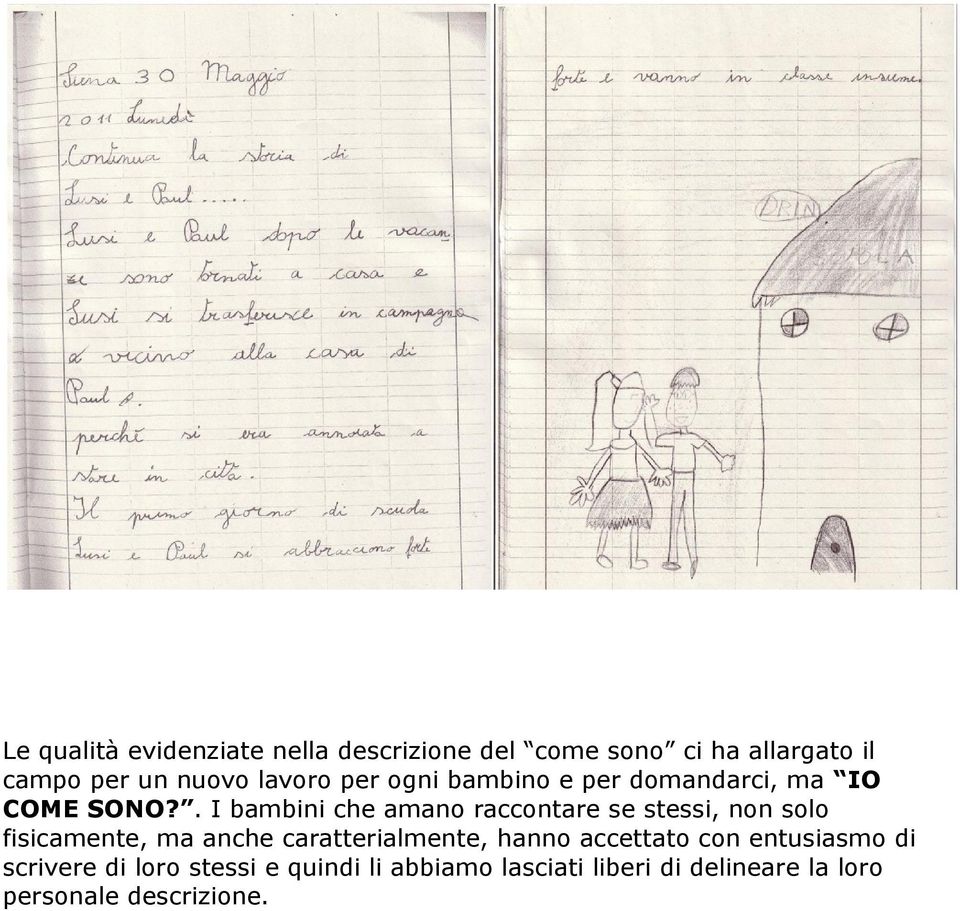 Siena 30 Maggio
2011 Lunedì
Continua la storia di
Lusi e Paul.....
Lusi e Paul dopo le vacan
ze sono tornati a casa e
Lusi si trasferisce in campagna
vicino alla casa di
Paul
perché si era annoiata a
stare in cità.
Il primo giorno di scuola
Lusi e Paul si abbracciono forte
forte e vanno in classe insieme.
DRIN
Le qualità evidenziate nella descrizione del “come sono” ci ha allargato il
campo per un nuovo lavoro per ogni bambino e per domandarci, ma “IO
COME SONO?”. I bambini che amano raccontare se stessi, non solo
fisicamente, ma anche caratterialmente, hanno accettato con entusiasmo di
scrivere di loro stessi e quindi li abbiamo lasciati liberi di delineare la loro
personale descrizione.